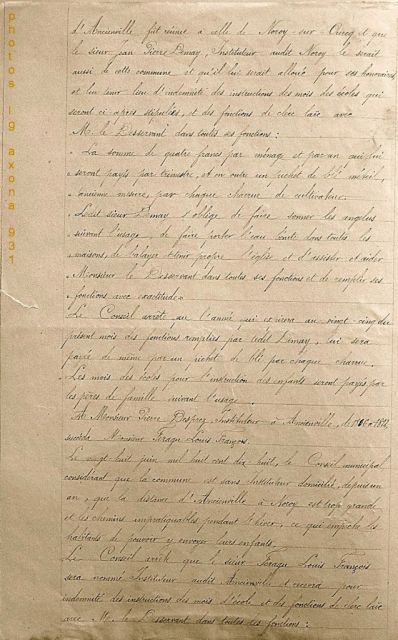 d'Ancienville fut réunie à celle de Noroy-sur-Ourcq et que
le sieur Jean Pierre Demay, Instituteur audit Noroy le serait
aussi de cette commune et qu'il lui serait alloué pour ses honoraires
et lui tenir lieu d'indemnité des instructions des mois des écoles qui
seront ci-après stipulées, et des fonctions de clerc laïc avec
M. le Desservant dans toutes ses fonctions :
" La somme de quatre francs par ménage et par an qui lui
" seront payés par trimestre, et en outre un pichet de blé méteil
" ancienne mesure, par chaque charrue de cultivateur.
" Ledit sieur Demay s'oblige de faire sonner les angelus
" suivant l'usage, de faire porter l'eau bénite dans toutes les
" maisons, de balayer et tenir propre l'église et d'assister et aider
" Monsieur le Desservant dans toutes ses fonctions et de remplir ses
" fonctions avec exactitude "
Le Conseil arrête que l'année qui écherra au vingt-cinq du
présent mois des fonctions remplies par ledit Demay, lui sera
payée de même par un pichet de blé par chaque charrue.
Les mois des écoles pour l'instruction des enfants seront payés par
les pères de famille suivant l'usage.
A Monsieur Pierre Desprez Instituteur à Ancienville, de à 1812,
succéda Monsieur Louis François.
Le vingt-huit juin mil huit cent dix huit, le Conseil municipal
considérant que la commune est sans Instituteur domicilié, depuis un
an, que la distance d'Ancienville à Noroy est trop grande
et les chemins impraticables pendant l'hiver, ce qui empêche les
habitants de pouvoir y envoyer leurs enfants.
Le Conseil arrête que le sieur Louis François
sera nommé Instituteur audit Ancienville et recevra pour
indemnité des instructions des mois d'école et des fonctions de clerc laïc
avec M. le Desservant dans toutes ses fonctions :
photos lg axona 931